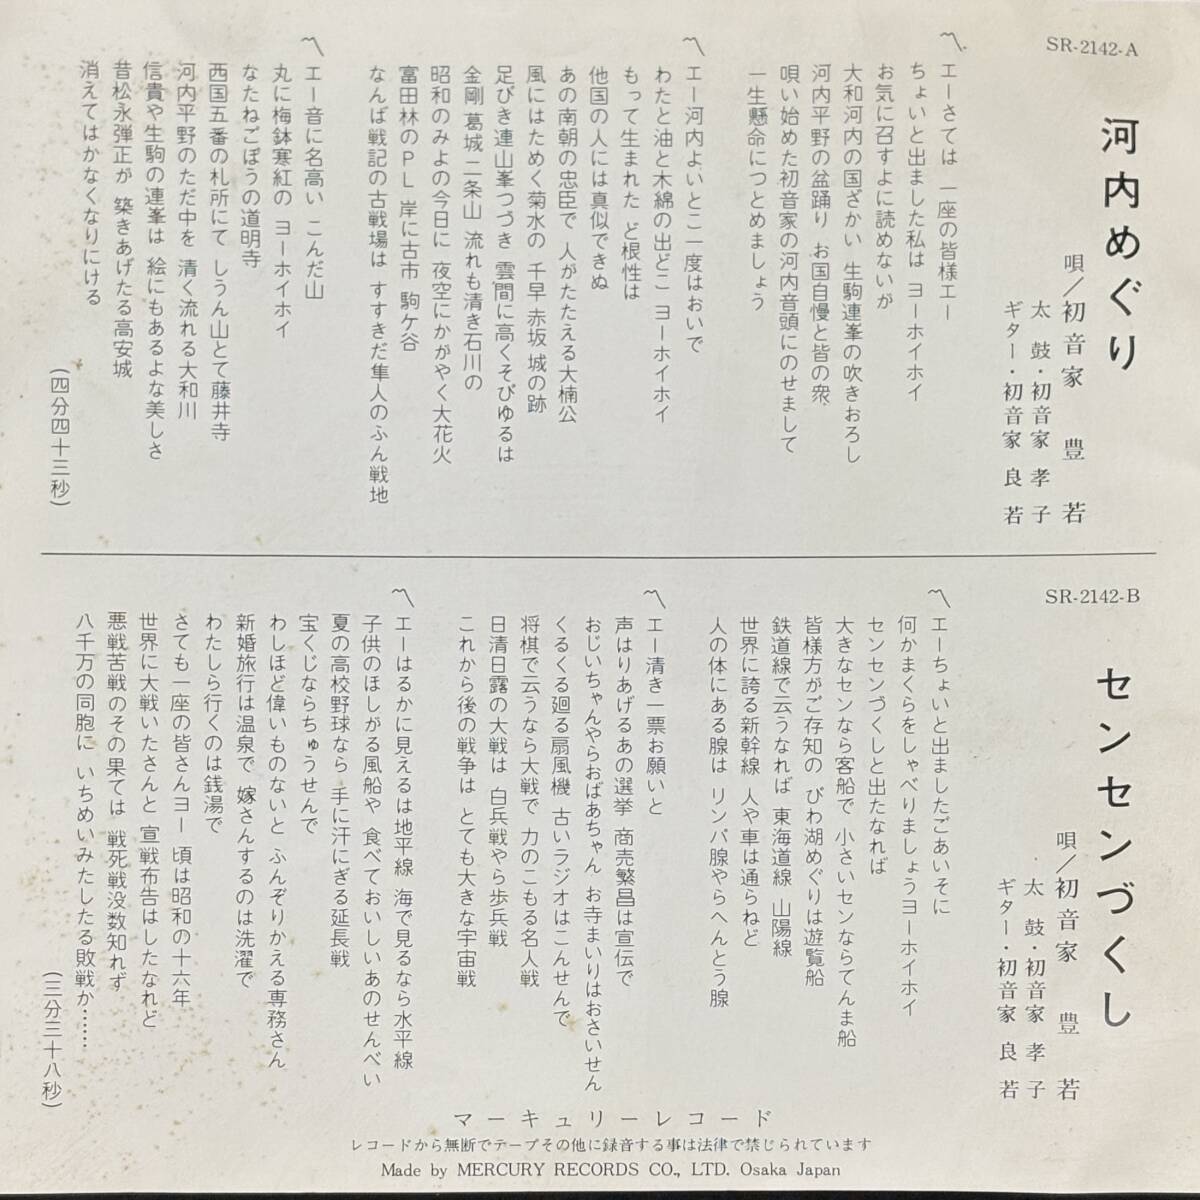 SR-2142-A
河内めぐり
唄／初音家 豊若
太鼓・初音家 孝子
ギター・初音家 良若
〽
エーさては 一座の皆様エー
ちょいと出ました私は ヨーホイホイ
お気に召すよに読めないが
大和河内の国ざかい 生駒連峯の吹きおろし
河内平野の盆踊り お国自慢と皆の衆
唄い始めた初音家の河内音頭にのせまして
一生懸命につとめましょう
〽
エー河内よいとこ一度はおいで
わたと油と木綿の出どこ ヨーホイホイ
もって生まれた ど根性は
他国の人には真似できぬ
あの南朝の忠臣で 人がたたえる大楠公
風にはためく菊水の 千早 赤坂 城の跡
足びき連山峯つづき 雲間に高くそびゆるは
金剛 葛城 二条山 流れも清き石川の
昭和のみよの今日に 夜空にかがやく大花火
富田林のPL 岸に古市 駒ケ谷
なんば戦記の古戦場は すすきだ隼人のふん戦地
〽
エー音に名高い こんだ山
丸に梅鉢寒紅の ヨーホイホイ
なたねごぼうの道明寺
西国五番の札所にて しうん山とて藤井寺
河内平野のただ中を 清く流れる大和川
信貴や生駒の連峯は 絵にもあるよな美しさ
昔松永弾正が 築きあげたる高安城
消えてはかなくなりにける
（四分四十三秒）
SR-2142-B
センセンづくし
唄／初音家 豊若
太鼓・初音家 孝子
ギター・初音家 良若
〽
エーちょいと出ましたごあいそに
何かまくらをしゃべりましょうヨーホイホイ
センセンづくしと出たなれば
大きなセンなら客船で 小さいセンならてんま船
皆様方がご存知の びわ湖めぐりは遊覧船
鉄道線で云うなれば 東海道線 山陽線
世界に誇る新幹線 人や車は通らねど
人の体にある腺は リンパ腺やらへんとう腺
〽
エー清き一票お願いと
声はりあげるあの選挙 商売繁昌は宣伝で
おじいちゃんやらおばあちゃん お寺まいりはおさいせん
くるくる廻る扇風機 古いラジオはこんせんで
将棋で云うなら大戦で 力のこもる名人戦
日清日露の大戦は 白兵戦やら歩兵戦
これから後の戦争は とても大きな宇宙戦
〽
エーはるかに見えるは地平線 海で見るなら水平線
子供のほしがる風船や 食べておいしいあのせんべい
夏の高校野球なら 手に汗にぎる延長戦
宝くじならちゅうせんで
わしほど偉いものないと ふんぞりかえる専務さん
新婚旅行は温泉で 嫁さんするのは洗濯で
わたしら行くのは銭湯で
さても一座の皆さんヨー 頃は昭和の十六年
世界に大戦いたさんと 宣戦布告はしたなれど
悪戦苦戦のその果ては 戦死戦没数知れず
八千万の同胞に いちめいみたしたる敗戦か……
（三分三十八秒）
マーキュリーレコード
レコードから無断でテープその他に録音する事は法律で禁じられています
Made by MERCURY RECORDS CO., LTD. Osaka Japan